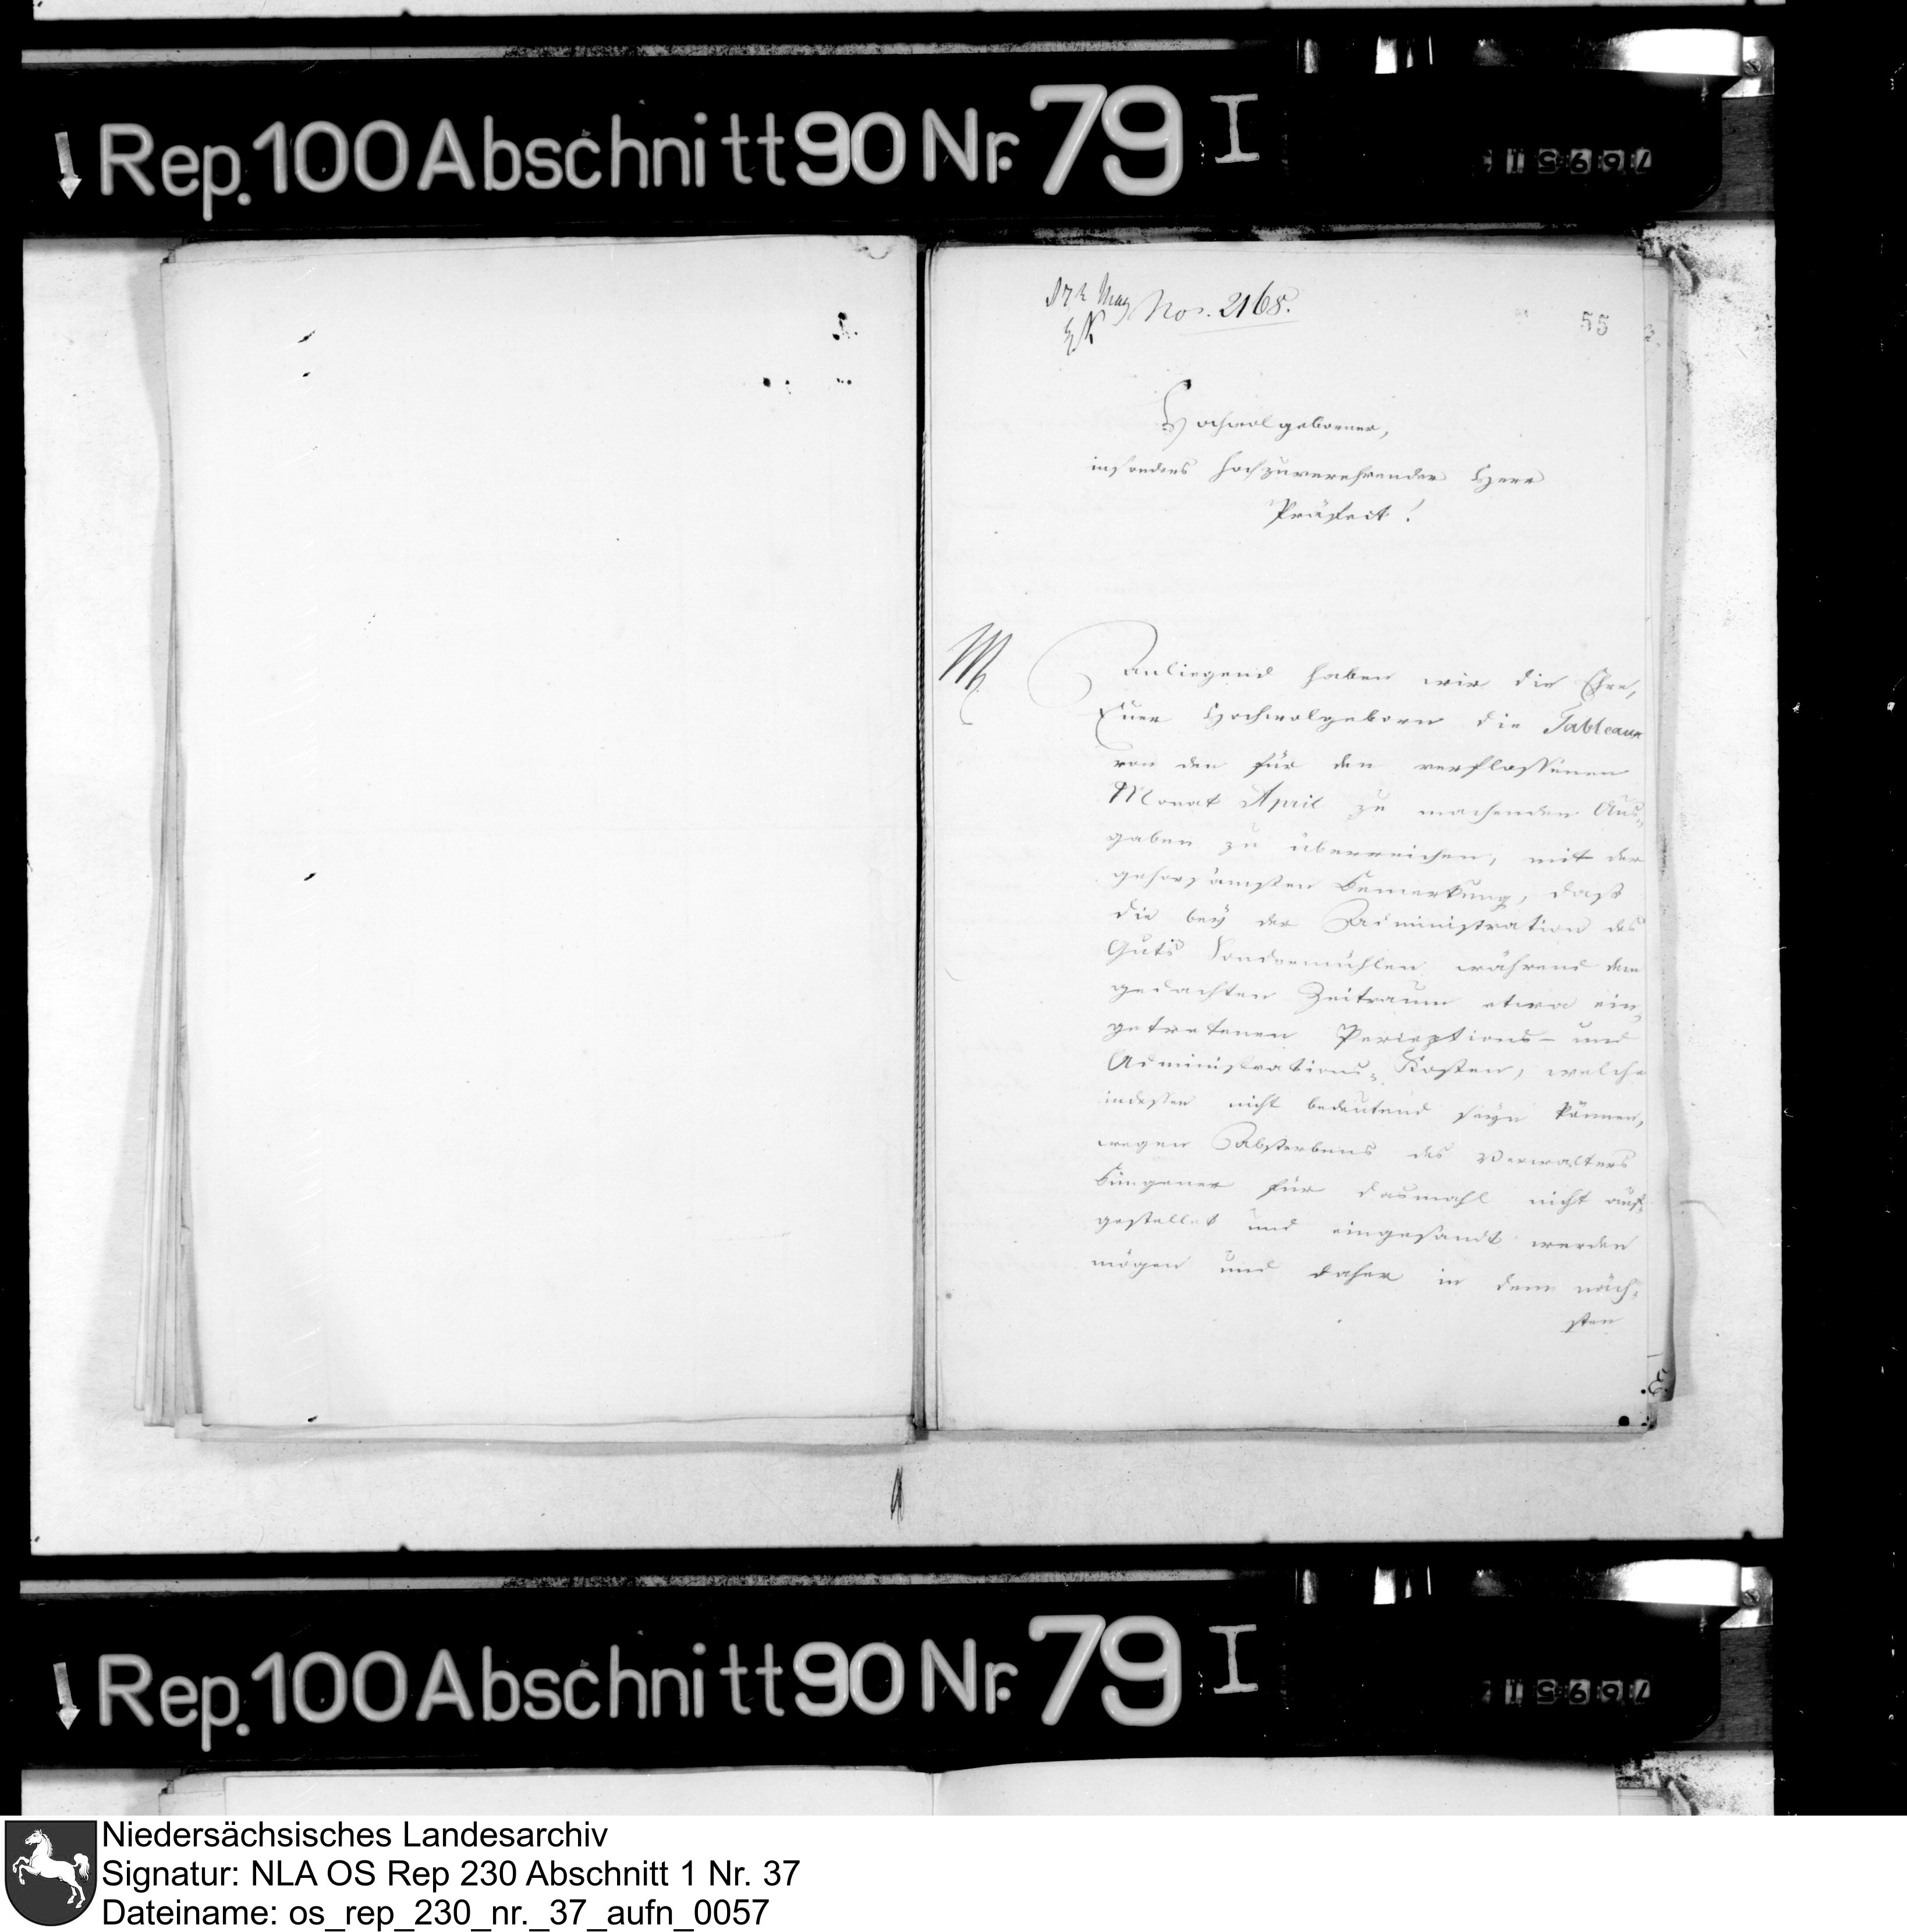 Rep. 100 Abschnitt 90 Nr. 79 I
76951
d 7t May Nos. 2168.
55
Hochwolgeborner,
insonders hochzuverehrender Herr
Präfect!
Anliegend haben wir die Ehre,
Euer Hochwolgeborn die Tableaux
von den für den verflossenen
Monat April zu machenden Aus-
gaben zu überreichen, mit der
gehorsamsten Bemerkung, daß
die bey der Administration des
Guts Sondermühlen während dem
gedachten Zeitraum etwa ein-
getretenen Perceptions- und
Administrations-Kosten, welche
indessen nicht bedeutend seyn können,
wegen Absterbens des Verwalters
für dasmahl nicht auf-
gestellet und eingesandt werden
mögen und daher in dem näch-
sten
Rep. 100 Abschnitt 90 Nr. 79 I
76951
Niedersächsisches Landesarchiv
Signatur: NLA OS Rep 230 Abschnitt 1 Nr. 37
Dateiname: os_rep_230_nr._37_aufn_0057